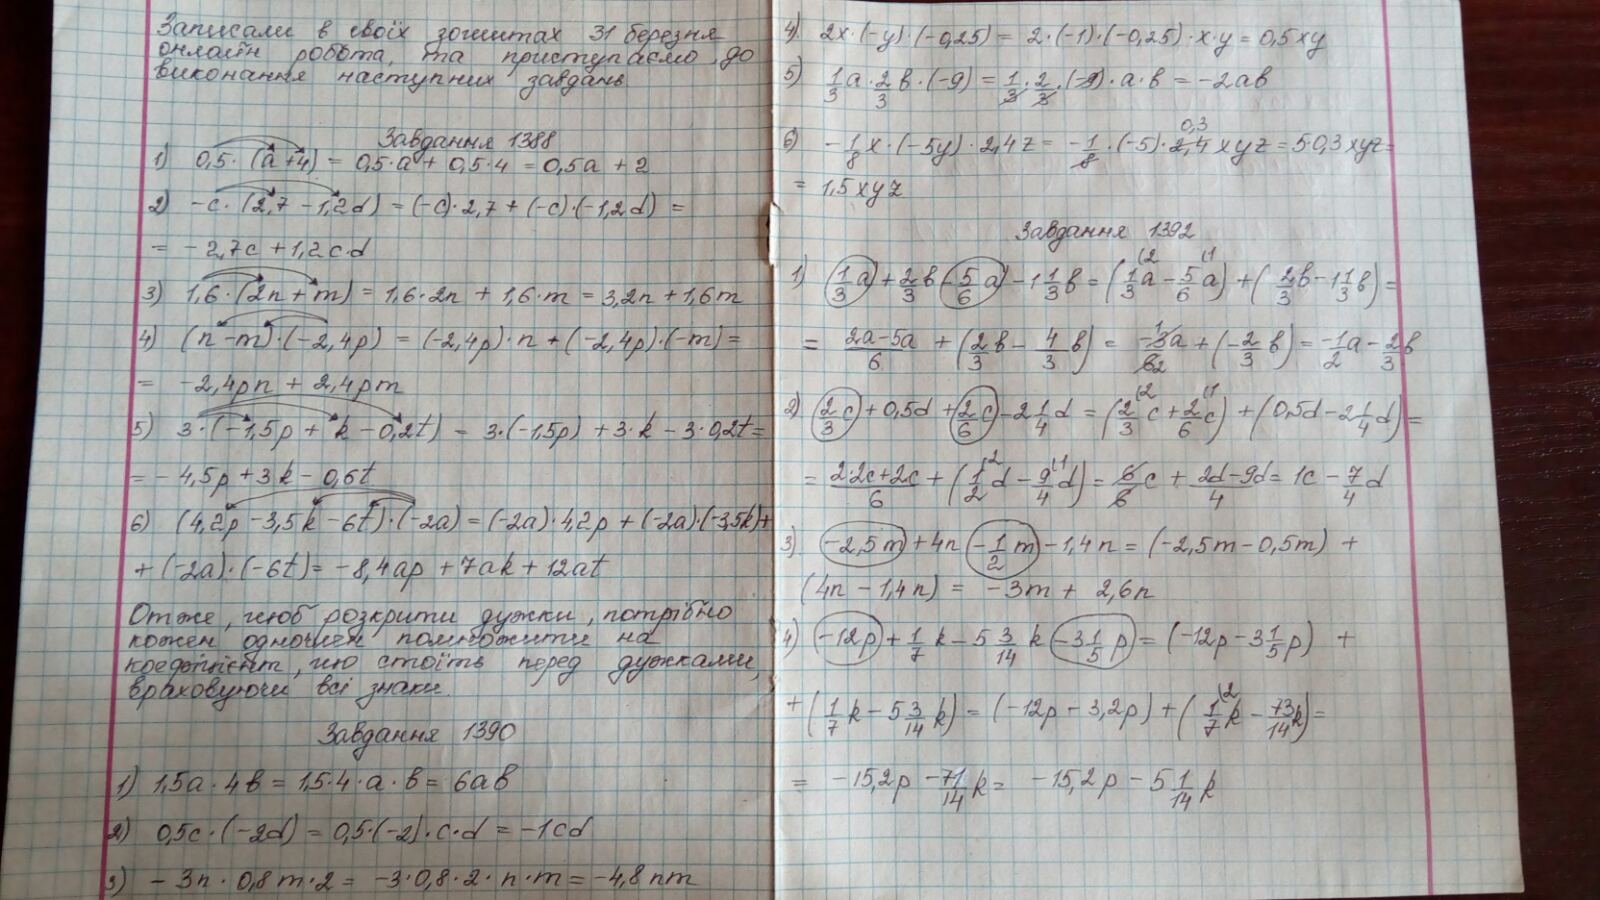 Записали в своїх зошитах 31 березня
онлайн робота, та приступаємо до
виконання наступних завдань
Завдання 1388
1) 0,5·(a+4) = 0,5·a + 0,5·4 = 0,5a + 2
2) -c·(2,7 - 1,2d) = (-c)·2,7 + (-c)·(-1,2d) =
= -2,7c + 1,2c·d
3) 1,6·(2n+m) = 1,6·2n + 1,6·m = 3,2n + 1,6m
4) (n-m)·(-2,4p) = (-2,4p)·n + (-2,4p)·(-m) =
= -2,4pn + 2,4pm
5) 3·(-1,5p + k - 0,2t) = 3·(-1,5p) + 3·k - 3·0,2t =
= -4,5p + 3k - 0,6t
6) (4,2p - 3,5k - 6t)·(-2a) = (-2a)·4,2p + (-2a)·(-3,5k) +
+ (-2a)·(-6t) = -8,4ap + 7ak + 12at
Отже, щоб розкрити дужки, потрібно
кожен одночлен помножити на
коефіцієнт, що стоїть перед дужками,
враховуючи всі знаки.
Завдання 1390
1) 1,5a·4b = 1,5·4·a·b = 6ab
2) 0,5c·(-2d) = 0,5·(-2)·c·d = -1cd
3) -3n·0,8m·2 = -3·0,8·2·n·m = -4,8nm
4) 2x·(-y)·(-0,25) = 2·(-1)·(-0,25)·x·y = 0,5xy
5) 1/3a·2/3b·(-9) = 1/3·2/3·(-9)·a·b = -2ab
6) -1/8x·(-5y)·2,4z = -1/8·(-5)·2,4 0,3 xyz = 5·0,3xyz =
= 1,5xyz
Завдання 1392
1) 1/3a + 2/3b - 5/6a - 1 1/3b = (1/3a - 5/6a) + (2/3b - 1 1/3b) =
= 2a-5a/6 + (2/3b - 4/3b) = -3a/6 + (-2/3b) = -1/2a - 2/3b
2) 2/3c + 0,5d + 2/6c - 2 1/4d = (2/3c + 2/6c) + (0,5d - 2 1/4d) =
= 2·2c+2c/6 + (1/2d - 9/4d) = 6/6c + 2d-9d/4 = 1c - 7/4d
3) -2,5m + 4n - 1/2m - 1,4n = (-2,5m - 0,5m) +
(4n - 1,4n) = -3m + 2,6n
4) -12p + 1/7k - 5 3/14k - 3 1/5p = (-12p - 3 1/5p) +
+ (1/7k - 5 3/14k) = (-12p - 3,2p) + (1/7k - 73/14k) =
= -15,2p - 71/14k = -15,2p - 5 1/14k